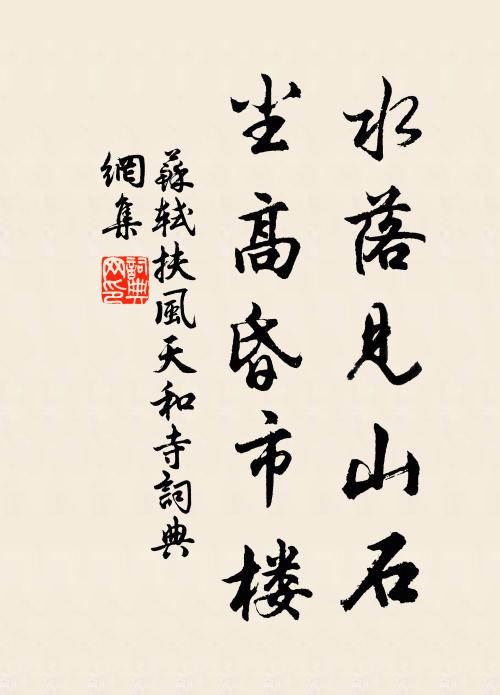 水落见山石
尘高昏市楼
蘇軾扶風天和寺詞典
網集
詞典網印